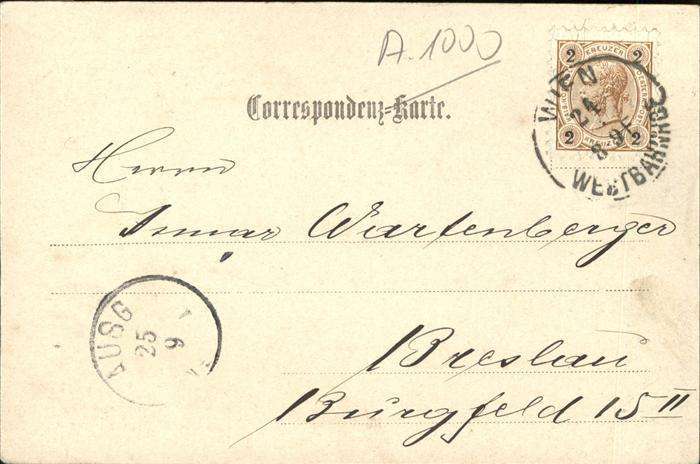 A. 1000
2 KREUZER 2
2 KREUZER 2
WIEN
24
8 9
WESTBAHNHOF
Correspondenz-Karte.
Herrn
Ismar Wartenberger
AUSG
25
9
Breslau
Burgfeld 15 II